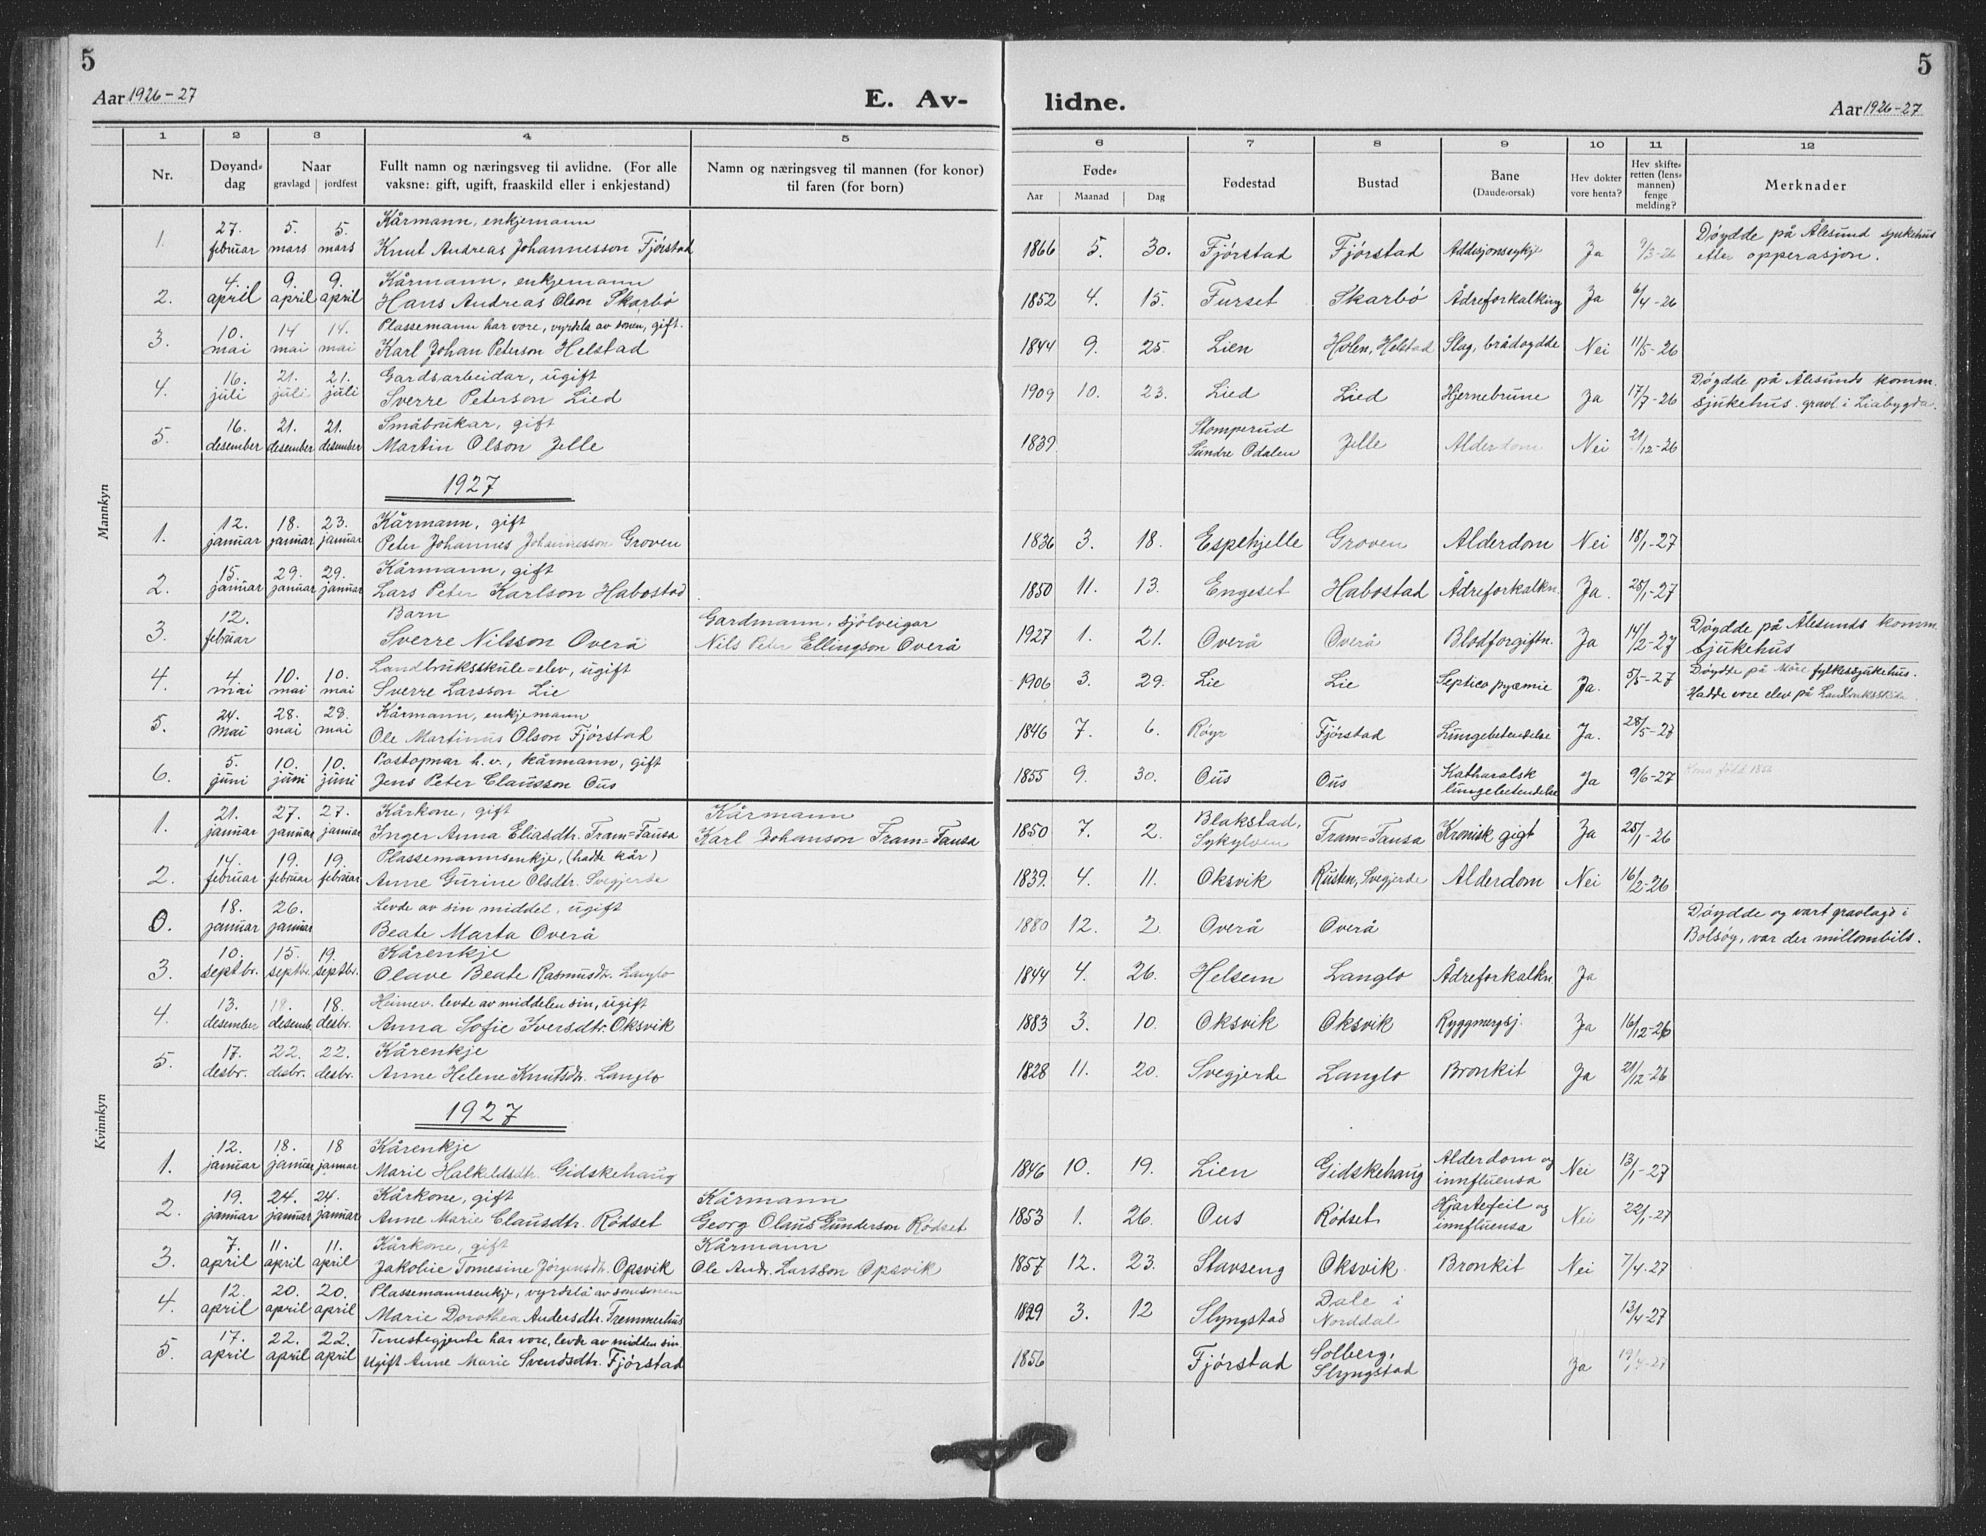 5
5
Aar 1926-27
E. Av-
lidne.
Aar 1926-27
1 2 3 4 5 6 7 8 9 10 11 12
Nr.
Døyand-
dag
Naar
gravlagd | jordfest
Fullt namn og næringsveg til avlidne. (For alle
vaksne: gift, ugift, fraaskild eller i enkjestand)
Namn og næringsveg til mannen (for konor)
til faren (for born)
Føde-
Aar Maanad Dag
Fødestad
Bustad
Bane
(Daude-orsak)
Hev dokter
vore henta?
Hev skifte-
retten (lens-
mannen)
fenge
melding?
Merknader
Mannkyn
1. 27. februar 5. mars 5. mars Kårmann, enkjemann
Knut Andreas Johannesson Fjørstad 1866 5. 30. Fjørstad Fjørstad Addisjonssykje Ja 9/3-26 Døydde på Ålesund sjukehus
etter opperasjon.
2. 4. april 9. april 9. april Kårmann, enkjemann
Hans Andreas Olson Skarbø 1852 4. 15. Furset Skarbø Ådreforkalking Ja 6/4-26
3. 10. mai 14 mai 14. mai Plassemann har vore, vyrdsla av sonen, gift.
Karl Johan Peterson Helstad 1844 9. 25. Lien Holen, Helstad Slag, brådøydde Nei 11/5-26
4. 16. juli 21. juli 21. juli Gardsarbeidar, ugift
Sverre Peterson Lied 1909 10. 23. Lied Lied Hjernebrune Ja 17/7-26 Døydde på Ålesunds komm.
sjukehus. gravl. i Liabygda.
5. 16. desember 21. desember 21. desember Småbrukar, gift
Martin Olson Jelle 1839 Stomperud
Sundre Odalen Jelle Alderdom Nei 21/12-26
1927
1. 12. januar 18. januar 23. januar Kårmann, gift
Peter Johannes Johannesson Groven 1836 3. 18. Espehjelle Groven Alderdom Nei 18/1-27
2. 15. januar 29. januar 29. januar Kårmann, gift
Lars Peter Karlson Habostad 1850 11. 13. Engeset Habostad Ådreforkalkn. Ja. 25/1-27
3. 12. februar Barn
Sverre Nilsson Overå Gardmann, sjølveigar
Nils Peter Ellingson Overå 1927 1. 21. Overå Overå Blodforgiftn. Ja 14/2-27 Døydde på Ålesunds komm.
sjukehus
4. 4. mai 10. mai 10. mai Landbruksskule-elev, ugift
Sverre Larsson Lie 1906 3. 29. Lie Lie Septico pyæmie Ja. 5/5-27 Døydde på Möre fylkessjukehus.
Hadde vore elev på Landbruksskule
5. 24. mai 28. mai 28. mai Kårmann, enkjemann
Ole Martinus Olson Fjørstad 1846 7. 6. Røyr Fjørstad Lungebetendelse Ja. 28/5-27
6. 5. juni 10. juni 10. juni Postopnar h.v., kårmann, gift
Jens Peter Clausson Ous 1855 9. 30. Ous Ous Katharalsk
lungebetendelse Ja 9/6-27 Kona född 1852
Kvinnkyn
1. 21. januar 27. januar 27. januar Kårkone, gift
Inger Anna Eliasdtr. Fram=Fausa Kårmann
Karl Johanson Fram=Fausa 1850 7. 2. Blakstad,
Sykylven Fram=Fausa Kronisk gigt Ja 25/1-26
2. 14. februar 19. februar 19. februar Plassemannsenkje, (hadde kår)
Anne Gurine Olsdtr. Svegjerde 1839. 4. 11. Oksvik Rusten, Svegjerde Alderdom Nei 16/2-26
0. 18. januar 26. januar Levde av sin middel, ugift
Beate Marta Overå 1880 12. 2. Overå Overå Døydde og vart gravlagd i
Bolsøy, var der millombils.
3. 10. septbr. 15. septbr. 19. septbr. Kårenkje
Olave Beate Rasmusdtr. Langlo 1844 4. 26. Helsem Langlo Ådreforkalkn. Ja
4. 13. desember 18. desemb. 18. desbr. Heimev. levde av middelen sin, ugift
Anna Sofie Iversdtr. Oksvik 1883 3. 10. Oksvik Oksvik Ryggmergsj. Ja 16/12-26
5. 17. desbr. 22. desbr. 22. desbr. Kårenkje
Anne Helene Knutsdtr. Langlo 1828 11. 20. Svegjerde Langlo Bronkit Ja 21/12-26
1927
1. 12. januar 18. januar 18 januar Kårenkje
Marie Halkildsdtr. Gidskehaug 1846 10. 19. Lien Gidskehaug Alderdom og
innfluensa Nei 13/1-27
2. 19. januar 24. januar 24. januar Kårkone, gift
Anne Marie Clausdtr. Rödset Kårmann
Georg Olaus Gunderson Rödset 1853 1. 26. Ous Rödset Hjartefeil og
innfluensa Nei 22/1-27
3. 7. april 11. april 11. april Kårkone, gift
Jakobie Tomesine Jørgensdtr. Opsvik Kårmann
Ole Andr. Larsson Opsvik 1857 12. 23. Stavseng Oksvik Bronkit Nei 7/4-27
4. 12. april 20. april 20. april Plassemannsenkje, vyrdsla av sonesonen
Marie Dorothea Andersdtr. Tremmerhus 1829 3. 12 Slyngstad Dale i
Norddal 13/4-27
5. 17. april 22. april 22. april Tenestegjente har vore, levde av midlen sin
ugift Anne Marie Svendsdtr. Fjørstad 1856 Fjørstad Solberg,
Slyngstad Ja 19/4-27